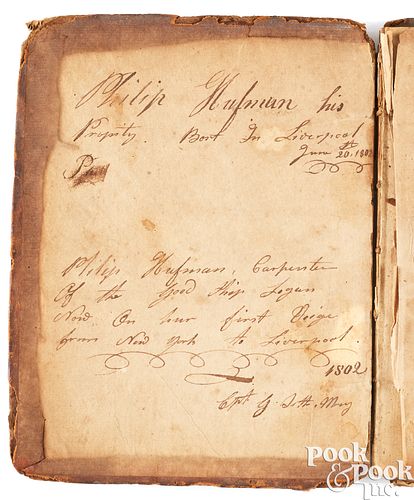 Philip Hufman his
Propity. Bort In Liverpool
June 20th. 1802
Philip Hufman, Carpenter
Of the Good Ship Logan
Now On hur first Voige
from New York to Liverpool.
1802
Cpt G.
POOK & POOK Inc.